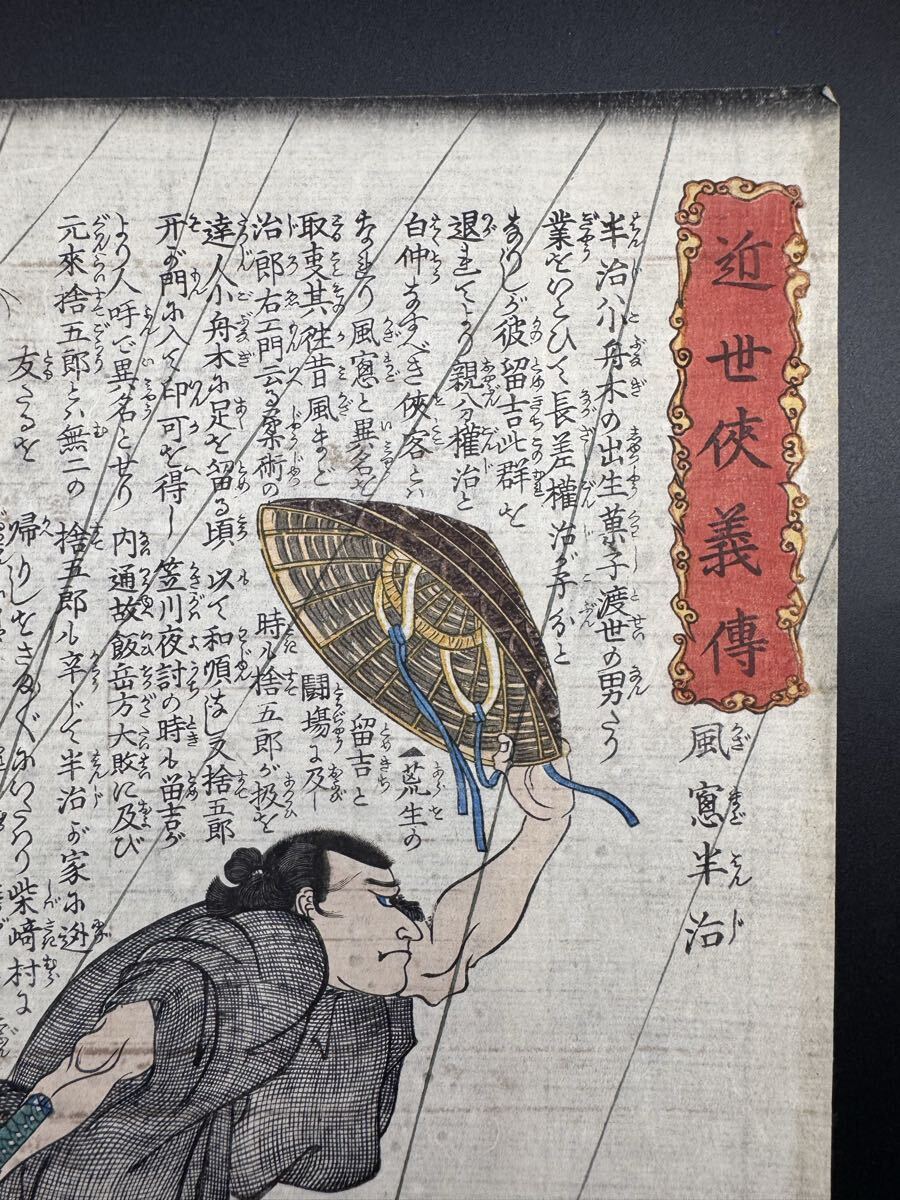 近世侠義傳
風窓半治
半治八小舟木の出生菓子渡世の男なり
業をいとひて長差權治が子分と
なりしが彼留吉此群を
退きてより親分權治と
白仲なすべき侠客とハ
なれり風窓と異名を
取叓其徃昔風まど
治郎右エ門云る柔術の
達人小舟木に足を留る頃
开が門に入て印可を得し
より人呼で異名とせり
元來捨五郎とハ無二の
友たるを
荒生の
留吉と
闘場に及し
時ル捨五郎が扱を
以て和順なし又捨五郎
笠川夜討の時も留吉が
内通故飯岳方大敗に及び
捨五郎ル辛じて半治が家に迯
帰りしをさま〴〵にいたはり柴﨑村に